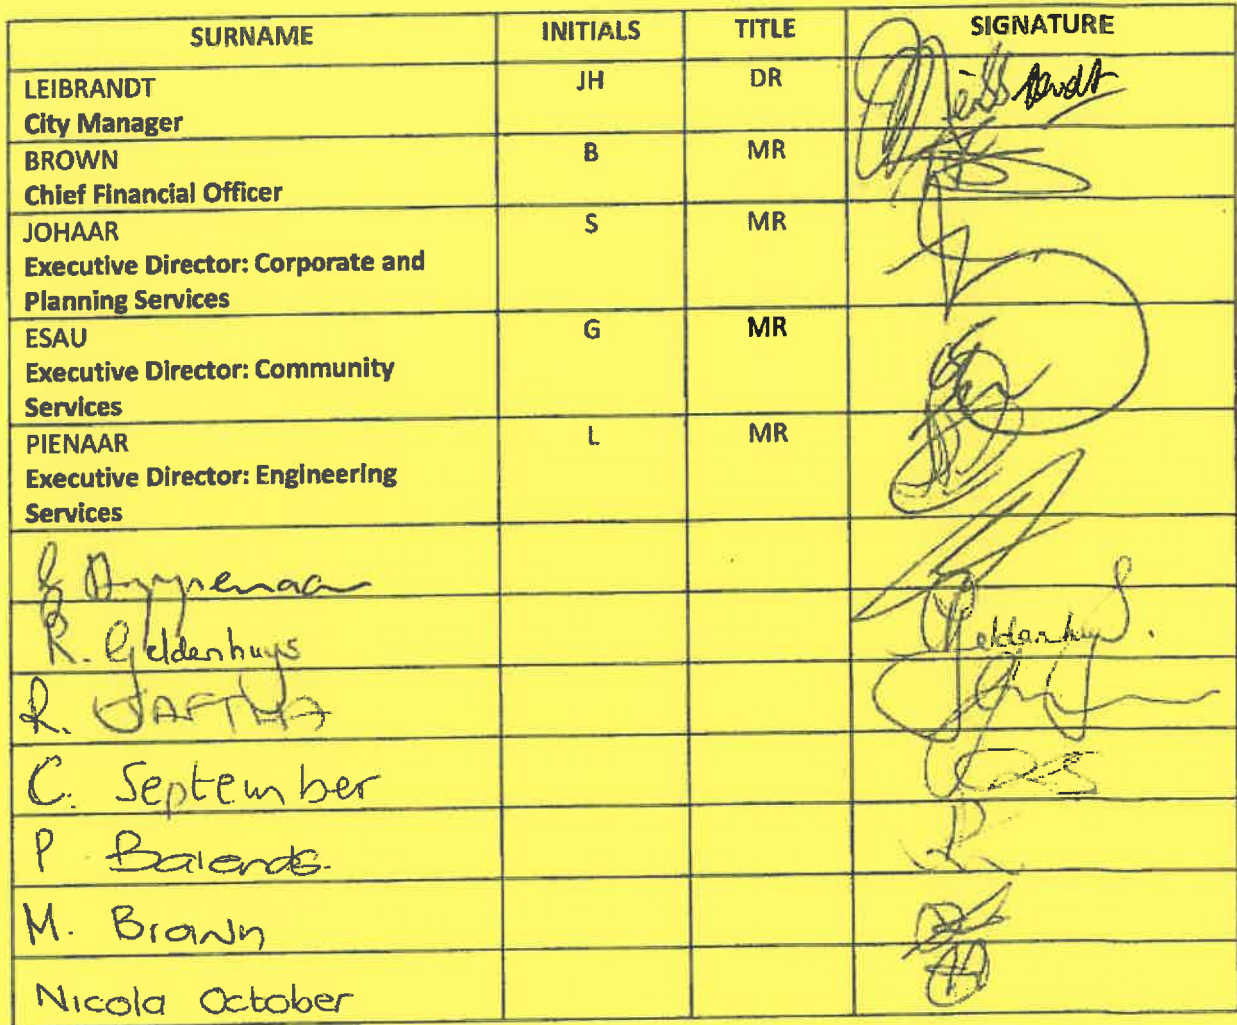 SURNAME INITIALS TITLE SIGNATURE
LEIBRANDT JH DR
City Manager
BROWN B MR
Chief Financial Officer
JOHAAR S MR
Executive Director: Corporate and
Planning Services
ESAU G MR
Executive Director: Community
Services
PIENAAR L MR
Executive Director: Engineering
Services
R. Geldenhuys Geldenhuys.
R. JAFTHA
C. September
P Barends.
M. Brown
Nicola October